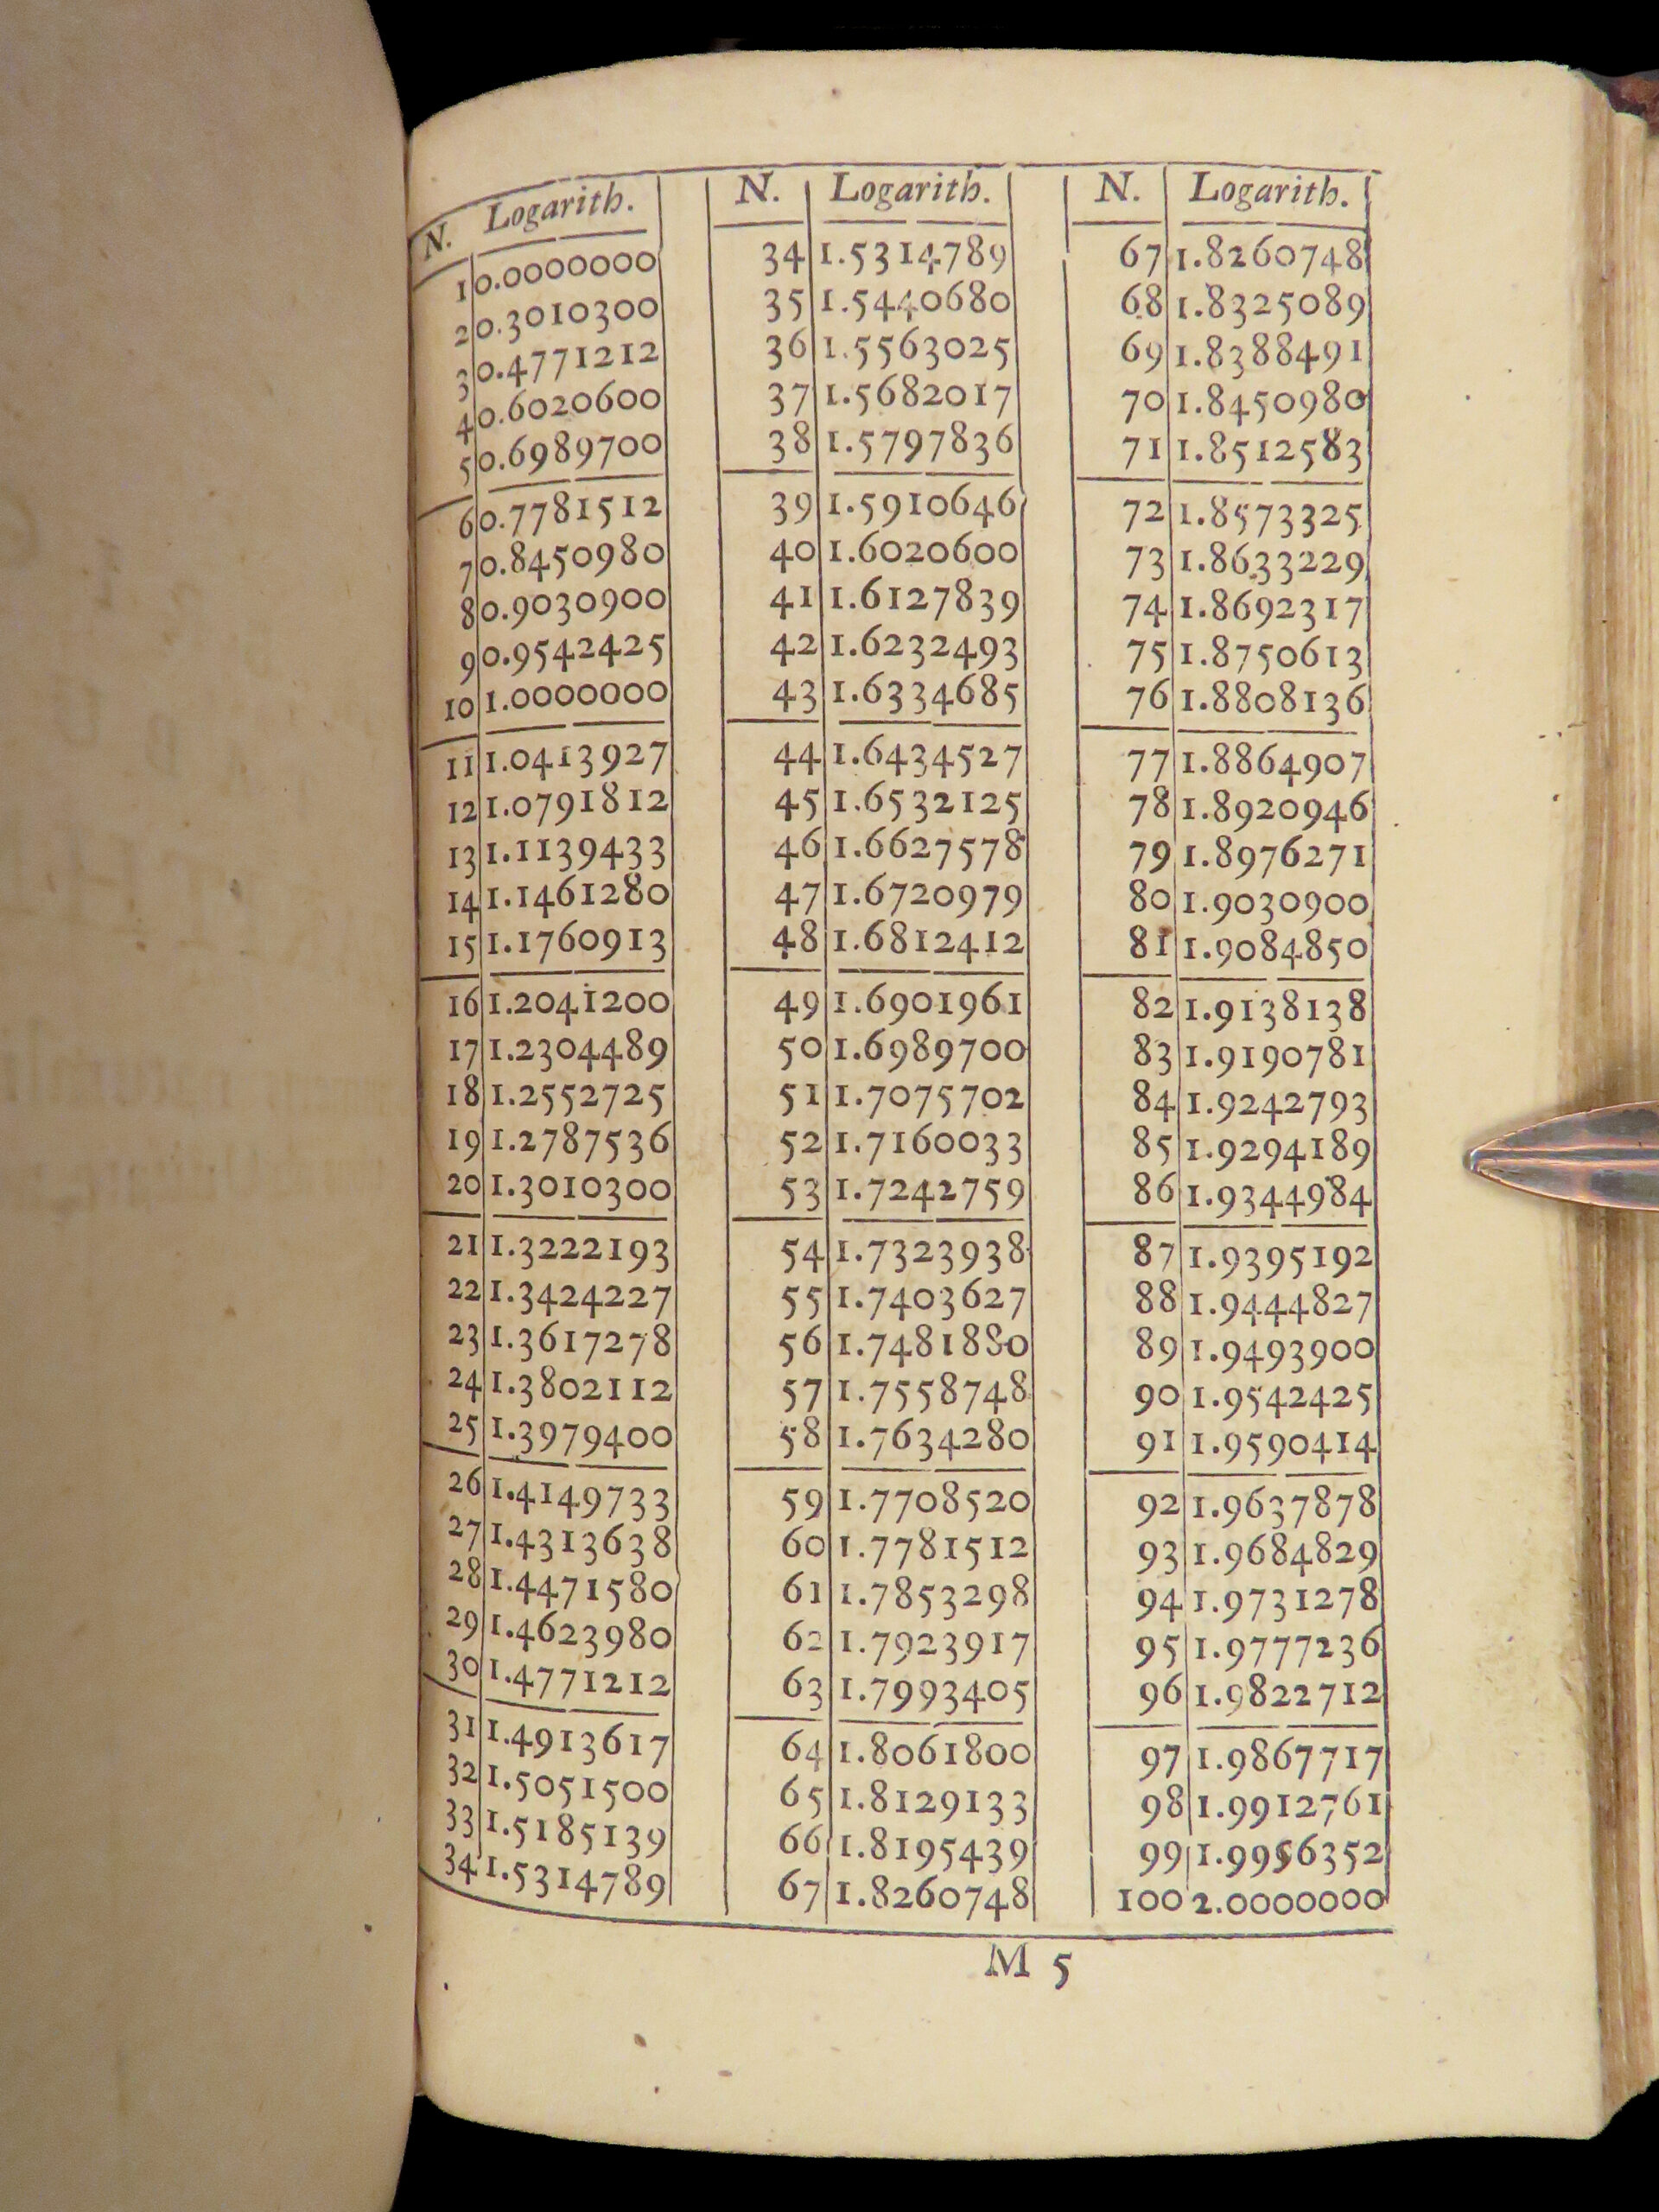 N. Logarith.
1 0.0000000
2 0.3010300
3 0.4771212
4 0.6020600
5 0.6989700
6 0.7781512
7 0.8450980
8 0.9030900
9 0.9542425
10 1.0000000
11 1.0413927
12 1.0791812
13 1.1139433
14 1.1461280
15 1.1760913
16 1.2041200
17 1.2304489
18 1.2552725
19 1.2787536
20 1.3010300
21 1.3222193
22 1.3424227
23 1.3617278
24 1.3802112
25 1.3979400
26 1.4149733
27 1.4313638
28 1.4471580
29 1.4623980
30 1.4771212
31 1.4913617
32 1.5051500
33 1.5185139
34 1.5314789
N. Logarith.
34 1.5314789
35 1.5440680
36 1.5563025
37 1.5682017
38 1.5797836
39 1.5910646
40 1.6020600
41 1.6127839
42 1.6232493
43 1.6334685
44 1.6434527
45 1.6532125
46 1.6627578
47 1.6720979
48 1.6812412
49 1.6901961
50 1.6989700
51 1.7075702
52 1.7160033
53 1.7242759
54 1.7323938
55 1.7403627
56 1.7481880
57 1.7558748
58 1.7634280
59 1.7708520
60 1.7781512
61 1.7853298
62 1.7923917
63 1.7993405
64 1.8061800
65 1.8129133
66 1.8195439
67 1.8260748
N. Logarith.
67 1.8260748
68 1.8325089
69 1.8388491
70 1.8450980
71 1.8512583
72 1.8573325
73 1.8633229
74 1.8692317
75 1.8750613
76 1.8808136
77 1.8864907
78 1.8920946
79 1.8976271
80 1.9030900
81 1.9084850
82 1.9138138
83 1.9190781
84 1.9242793
85 1.9294189
86 1.9344984
87 1.9395192
88 1.9444827
89 1.9493900
90 1.9542425
91 1.9590414
92 1.9637878
93 1.9684829
94 1.9731278
95 1.9777236
96 1.9822712
97 1.9867717
98 1.9912761
99 1.9956352
100 2.0000000
M 5